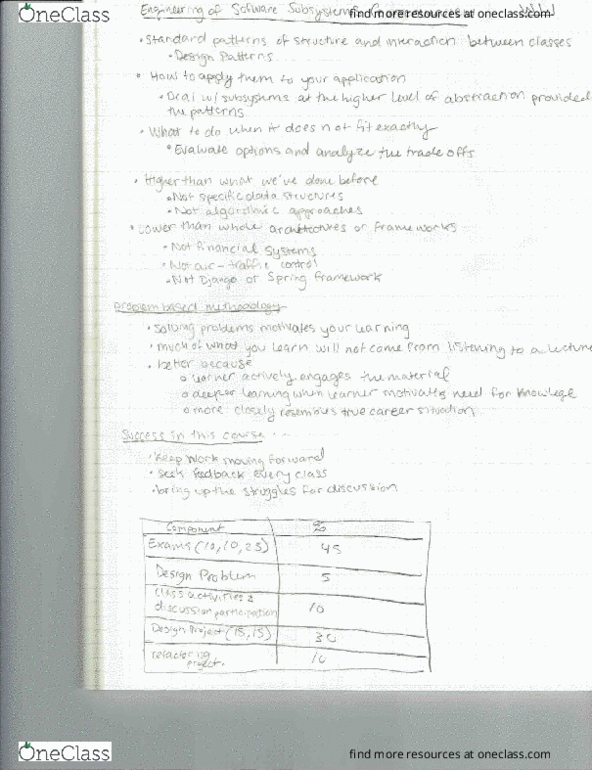 OneClass
find more resources at oneclass.com
Engineering of Software Subsystems
• Standard patterns of structure and interaction between classes
• Design Patterns
• How to apply them to your application
• Deal w/ subsystems at the higher level of abstraction provided
the patterns
• What to do when it does not fit exactly
• Evaluate options and analyze the trade offs
• Higher than what we've done before
• Not specific data structures
• Not algorithmic approaches
• Lower than whole architectures or frameworks
• Not financial systems
• Not air-traffic control
• Not Django or Spring framework
problem based methodology
• solving problems motivates your learning
• much of what you learn will not come from listening to a lecture
• better because
o learner actively engages the material
o deeper learning when learner motivates need for knowlege
o more closely resembles true career situation
Success in this course ...
• keep work moving forward
• seek feedback every class
• bring up the struggles for discussion
Component %
Exams (10,10,25) 45
Design Problem 5
Class activities &
discussion participation 10
Design Project (15,15) 30
refactoring
project. 10
OneClass
find more resources at oneclass.com